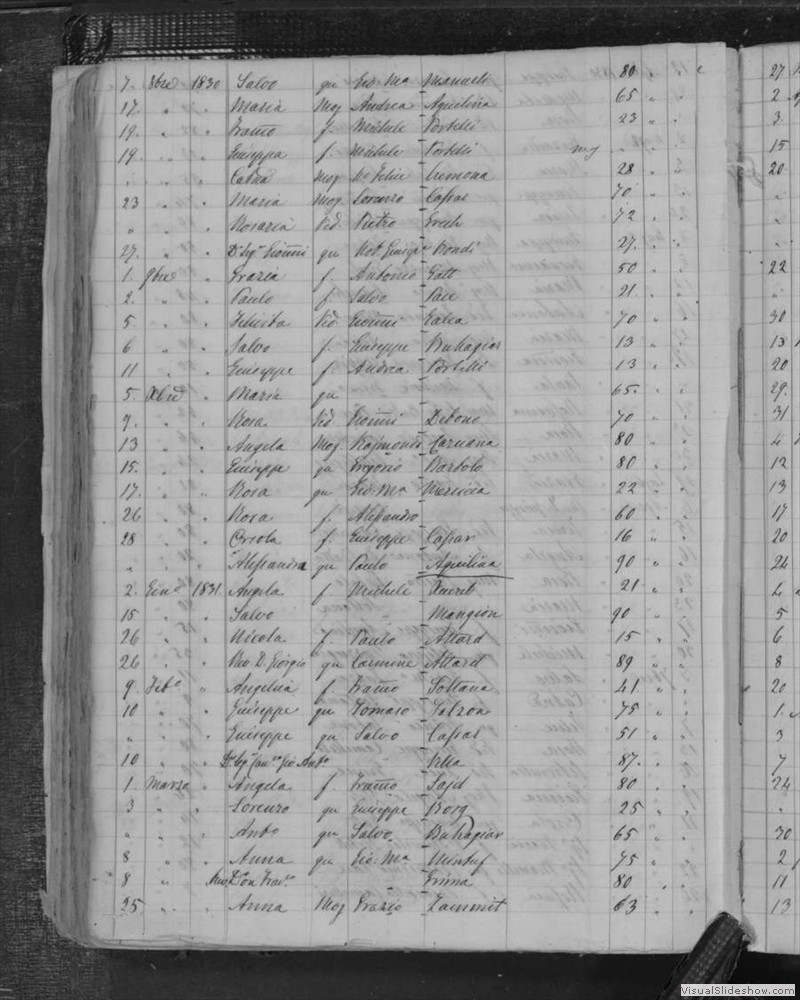 7. 8bre 1830 Salvo qu Gio: Ma Mamuli 80 " "
17. " " Maria Mog Andrea Aquilina 65 " "
19. " " Franco f. Michele Portelli 23 " "
19. " " Giuseppa f. Michele Portelli
" " " Catna Mog De Felice Cremona 28 " "
23 " " Maria Mog Lorenzo Cassar 70 " "
" " " Rosaria Vid. Pietro 72 " "
27. " " Giomni qu Not. Bondi 27. " "
1. 9bre " Grazia f. Antonio Gatt 50 " "
2. " " Paulo f. Salvo Pace 21 " "
5. " " Felicita Vid Giomni Galea 70 " "
6 " " Salvo f. Giuseppe Buhagiar 13 " "
11 " " Giuseppe f. Andrea Portelli 13 " "
5. Xbre " Maria qu 65. " "
9. " " Rosa Vid Giomni Debono 70 " "
13 " " Angela Mog Rajmondo Caruana 80 " "
15. " " Giuseppe qu Gregorio Bartolo 80 " "
17. " " Rosa qu Gio: Ma Mercieca 22 " "
26 " " Rosa f. Alessandro 60 " "
28 " " Orsola f. Giuseppe Cassar 16 " "
" " " Alessandra qu Paulo Aquilina 90 " "
2. Gino 1831. Angela f Michele Xuereb 21 " "
15 " " Salvo Mangion 90 " "
26 " " Nicola f. Paulo Attard 15 " "
26 " " Rev D. Giorgio qu Carmine Attard 89 " "
9. Febo " Angelica f Franco Soltana 41 " "
10 " " Giuseppe qu Tomaso Falzon 75 " "
" " " Giuseppe qu Salvo Cassar 51 " "
10 " " Gio Anto Vella 87. " "
1. Marzo " Angela f. Franco Sajd 80 " "
3 " " Lorenzo qu Giuseppe Borg 25 " "
" " " Anto qu Salvo Buhagiar 65 " "
8 " " Anna qu Gio: Ma Mintuf 75 " "
8 " " Grima 80 " "
25 " " Anna Mog Grazio Zammit 63 " "
27
2
3
15
20
22
30
13
20
29
31
4
12
13
17
20
24
4
5
6
8
20
1
3
7
24
30
2
11
13
VisualSlideshow.com